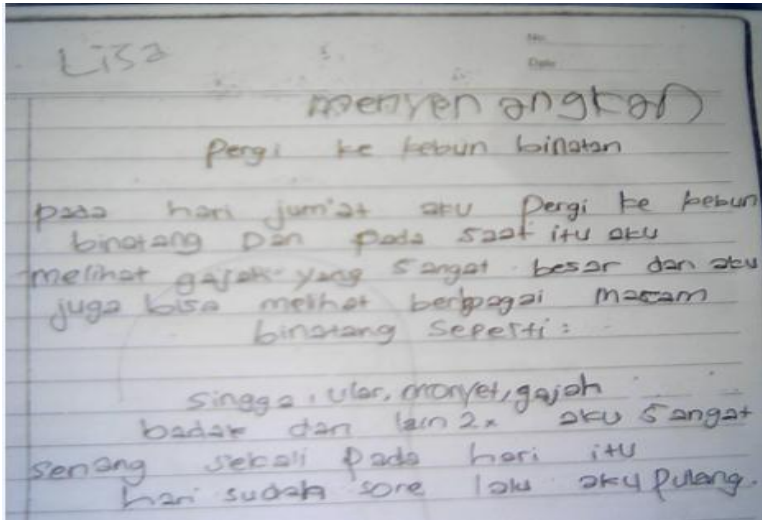 Lisa
No.
Date
menyenangkan
Pergi ke kebun binatan
pada hari jum'at aku pergi ke kebun
binatang Dan pada saat itu aku
melihat gajah yang sangat besar dan aku
juga bisa melihat berbagai macam
binatang seperti:
singga, ular, monyet, gajah
badak dan lain 2x aku sangat
senang sekali pada hari itu
hari sudah sore lalu aku pulang.